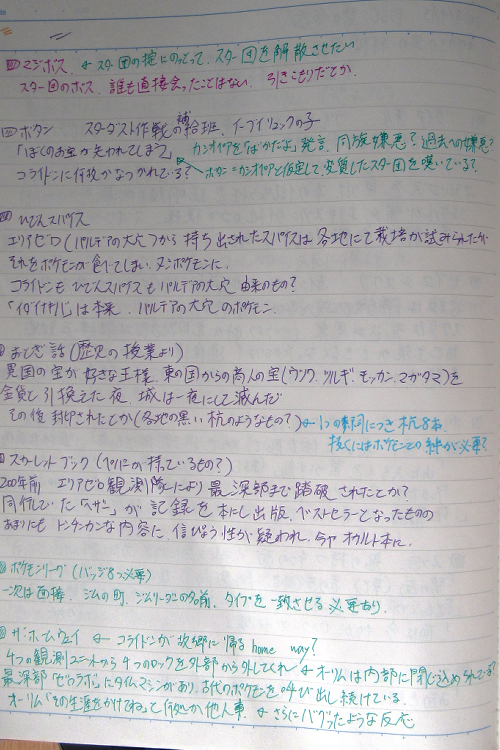 マジボス ← スター団の掟にのっとって、スター団を解散させたい
スター団のボス、誰も直接会ったことはない 引きこもりだとか
ボタン スターダスト作戦の補給班、イーブイリュックの子
「ぼくのお宝が失われてしまう」 カシオペアを「ばかだよ」発言、同族嫌悪?過去への嫌悪?
コライドンに何故かなつかれている? ボタン=カシオペアと仮定して、変質したスター団を嘆いている?
ひでんスパイス
エリアゼロ(パルデアの大穴)から持ち出されたスパイスは各地にて栽培が試みられたが
それをポケモンが食べてしまい、ヌシポケモンに。
コライドンもひでんスパイスもパルデアの大穴由来のもの?
「イダイナキバ」は本来、パルデアの大穴のポケモン。
おとぎ話(歴史の授業より)
異国の宝が好きな王様、東の国からの商人の宝(ウツワ、ツルギ、モッカン、マガタマ)を
金貨と引換えた夜、城は一夜にして滅んだ
その後封印されたとか(各地の黒い杭のようなもの?) ← 1つの祠につき杭8本
抜くにはポケモンとの絆が必要?
スカーレットブック(ペパーの持っているもの?)
200年前 エリアゼロ観測隊により最深部まで踏破されたとか?
同行していた「ヘザー」が記録を本にし出版、ベストセラーとなったものの
あまりにもトンチンカンな内容に、信ぴょう性が疑われ、今やオカルト本に。
ポケモンリーグ(バッジ8つ必要)
一次は面接、ジムの町、ジムリーダーの名前、タイプを一致させる必要あり。
ザ・ホームウェイ ← コライドンが故郷に帰る home way?
4つの観測ユニットから4つのロックを外部から外してくれ ← オーリムは内部に閉じ込められている?
最深部「ゼロラボ」にタイムマシンがあり、古代のポケモンを呼び出し続けている。
オーリム「その生涯をかけてね」と何処か他人事 ← さらにバグったような反応